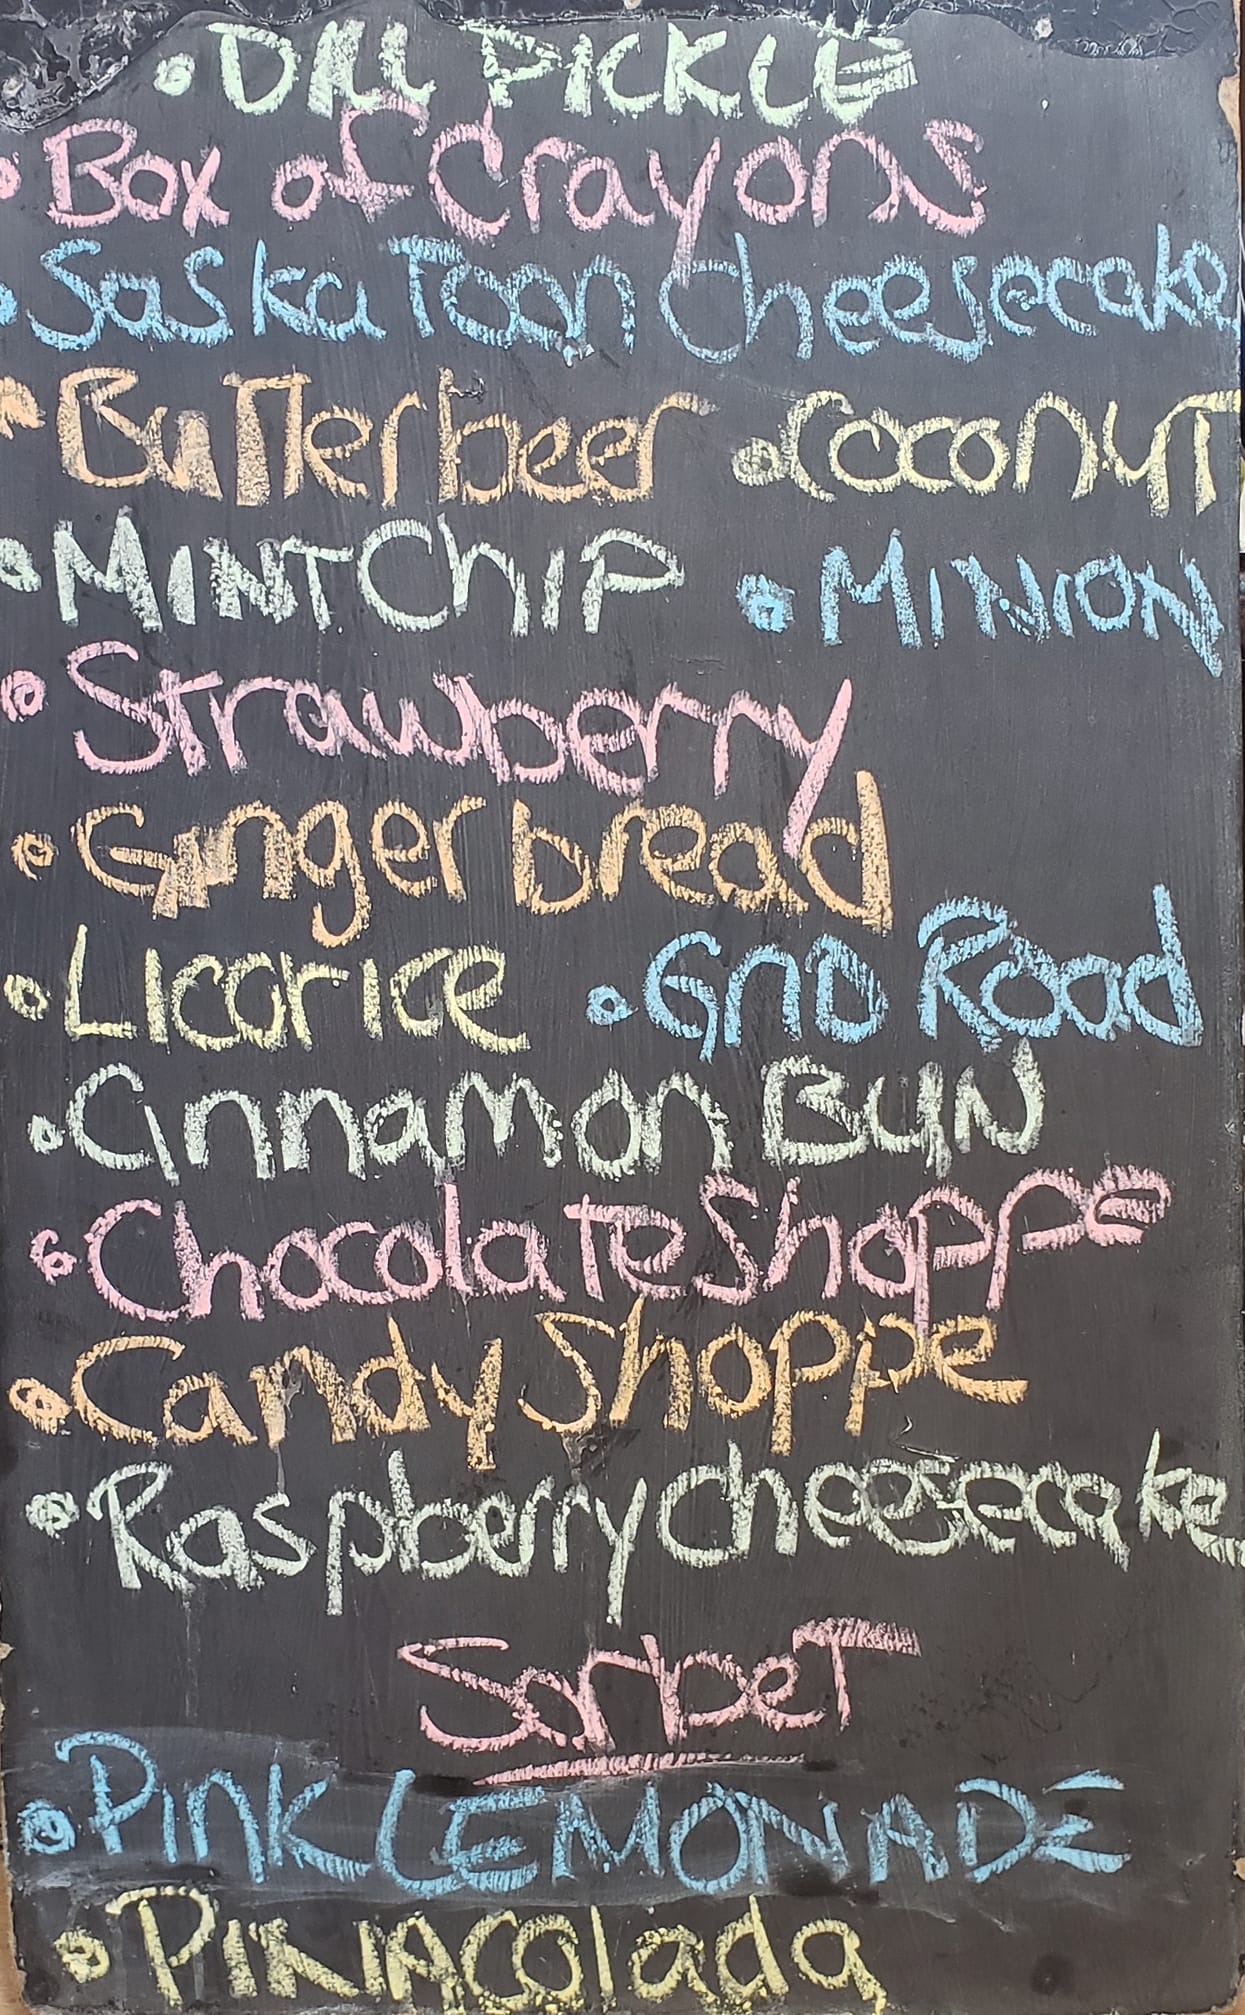 • DILL PICKLE
• Box of Crayons
• SaskaToon Cheesecake
• Butterbeer • Coconut
• MINT Chip • MINION
• Strawberry
• Gingerbread
• Licorice • GRID Road
• Cinnamon BUN
• Chocolate Shoppe
• Candy Shoppe
• Raspberry Cheesecake
Sorbet
• Pink LEMONADE
• PINACOlada